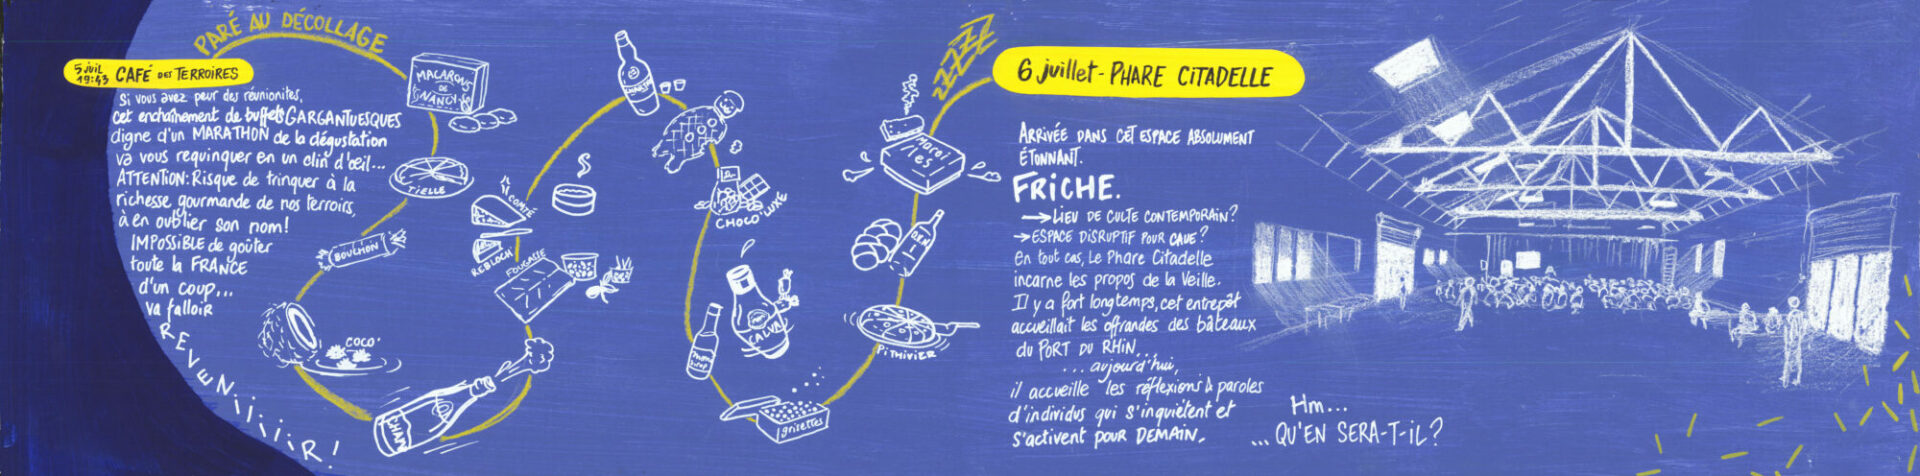 PARÉ AU DÉCOLLAGE
5 juil 19:43 CAFÉ DES TERROIRES
Si vous avez peur des réunionites,
cet enchaînement de buffets GARGANTUESQUES
digne d'un MARATHON de la dégustation
va vous requinquer en un clin d'œil...
ATTENTION: Risque de trinquer à la
richesse gourmande de nos terroirs,
à en oublier son nom!
IMPOSSIBLE de goûter
toute la FRANCE
d'un coup...
va falloir
REVENiiiiiR!
MACARONS
DE
NANCY
TIELLE
BOUCHON
COCO'
CHAM
COMTÉ
REBLOCH'
FOUGASSE
CHOCO'LUXE
CALVA
grisettes
Maroilles
PITHIVIER
ZZZZZZZ
6 juillet - PHARE CITADELLE
ARRIVÉE DANS CET ESPACE ABSOLUMENT
ÉTONNANT.
FRiCHE.
→ LIEU DE CULTE CONTEMPORAIN?
→ ESPACE DISRUPTIF POUR CAUE?
En tout cas, Le Phare Citadelle
incarne les propos de la Veille.
Il y a fort longtemps, cet entrepôt
accueillait les offrandes des bâteaux
du PORT DU RHIN...
... aujourd'hui,
il accueille les réflexions & paroles
d'individus qui s'inquiètent et
s'activent pour DEMAIN.
Hm...
... QU'EN SERA-T-iL?